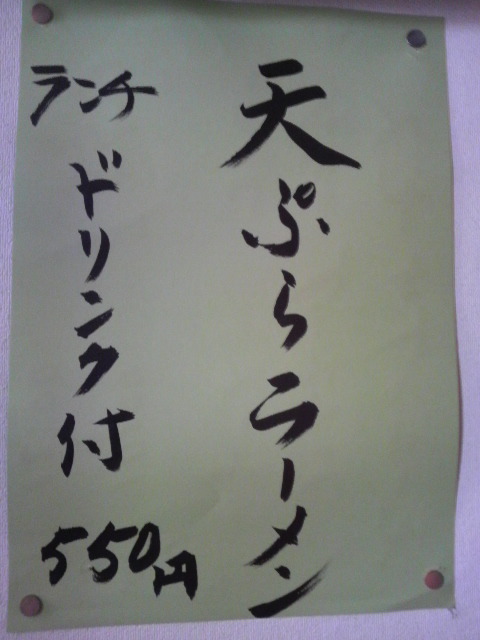 天ぷらラーメン
ランチ
ドリンク付
550円